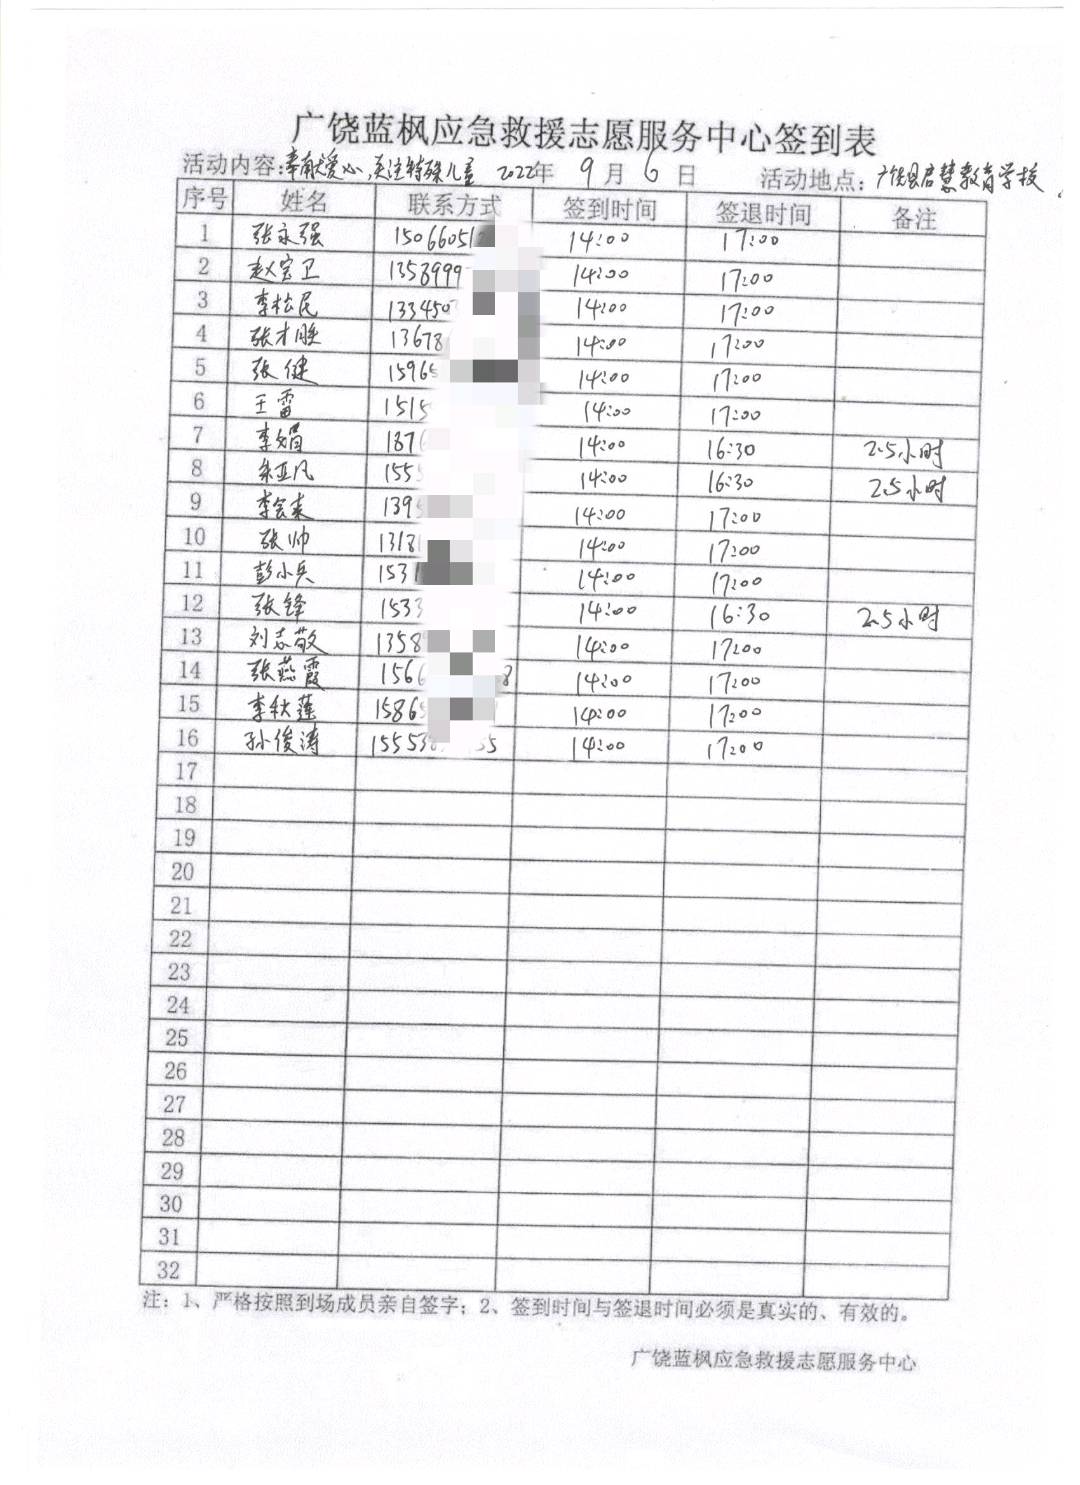 广饶蓝枫应急救援志愿服务中心签到表
活动内容:奉献爱心,关注特殊儿童 2022年 9月6日 活动地点:广饶县启慧教育学校
序号 姓名 联系方式 签到时间 签退时间 备注
1 张永强 15066051 14:00 17:00
2 赵宝卫 1358999 14:00 17:00
3 李松民 133450 14:00 17:00
4 张才胜 13678 14:00 17:00
5 张健 15965 14:00 17:00
6 王雷 1515 14:00 17:00
7 李娟 1876 14:00 16:30 2.5小时
8 朱亚凡 1555 14:00 16:30 2.5小时
9 李会来 1395 14:00 17:00
10 张帅 1318 14:00 17:00
11 彭小兵 1531 14:00 17:00
12 张锋 1533 14:00 16:30 2.5小时
13 刘志敬 1358 14:00 17:00
14 张燕霞 1566 8 14:00 17:00
15 李秋莲 1586 14:00 17:00
16 孙俊涛 15553 55 14:00 17:00
17
18
19
20
21
22
23
24
25
26
27
28
29
30
31
32
注:1、严格按照到场成员亲自签字;2、签到时间与签退时间必须是真实的、有效的。
广饶蓝枫应急救援志愿服务中心